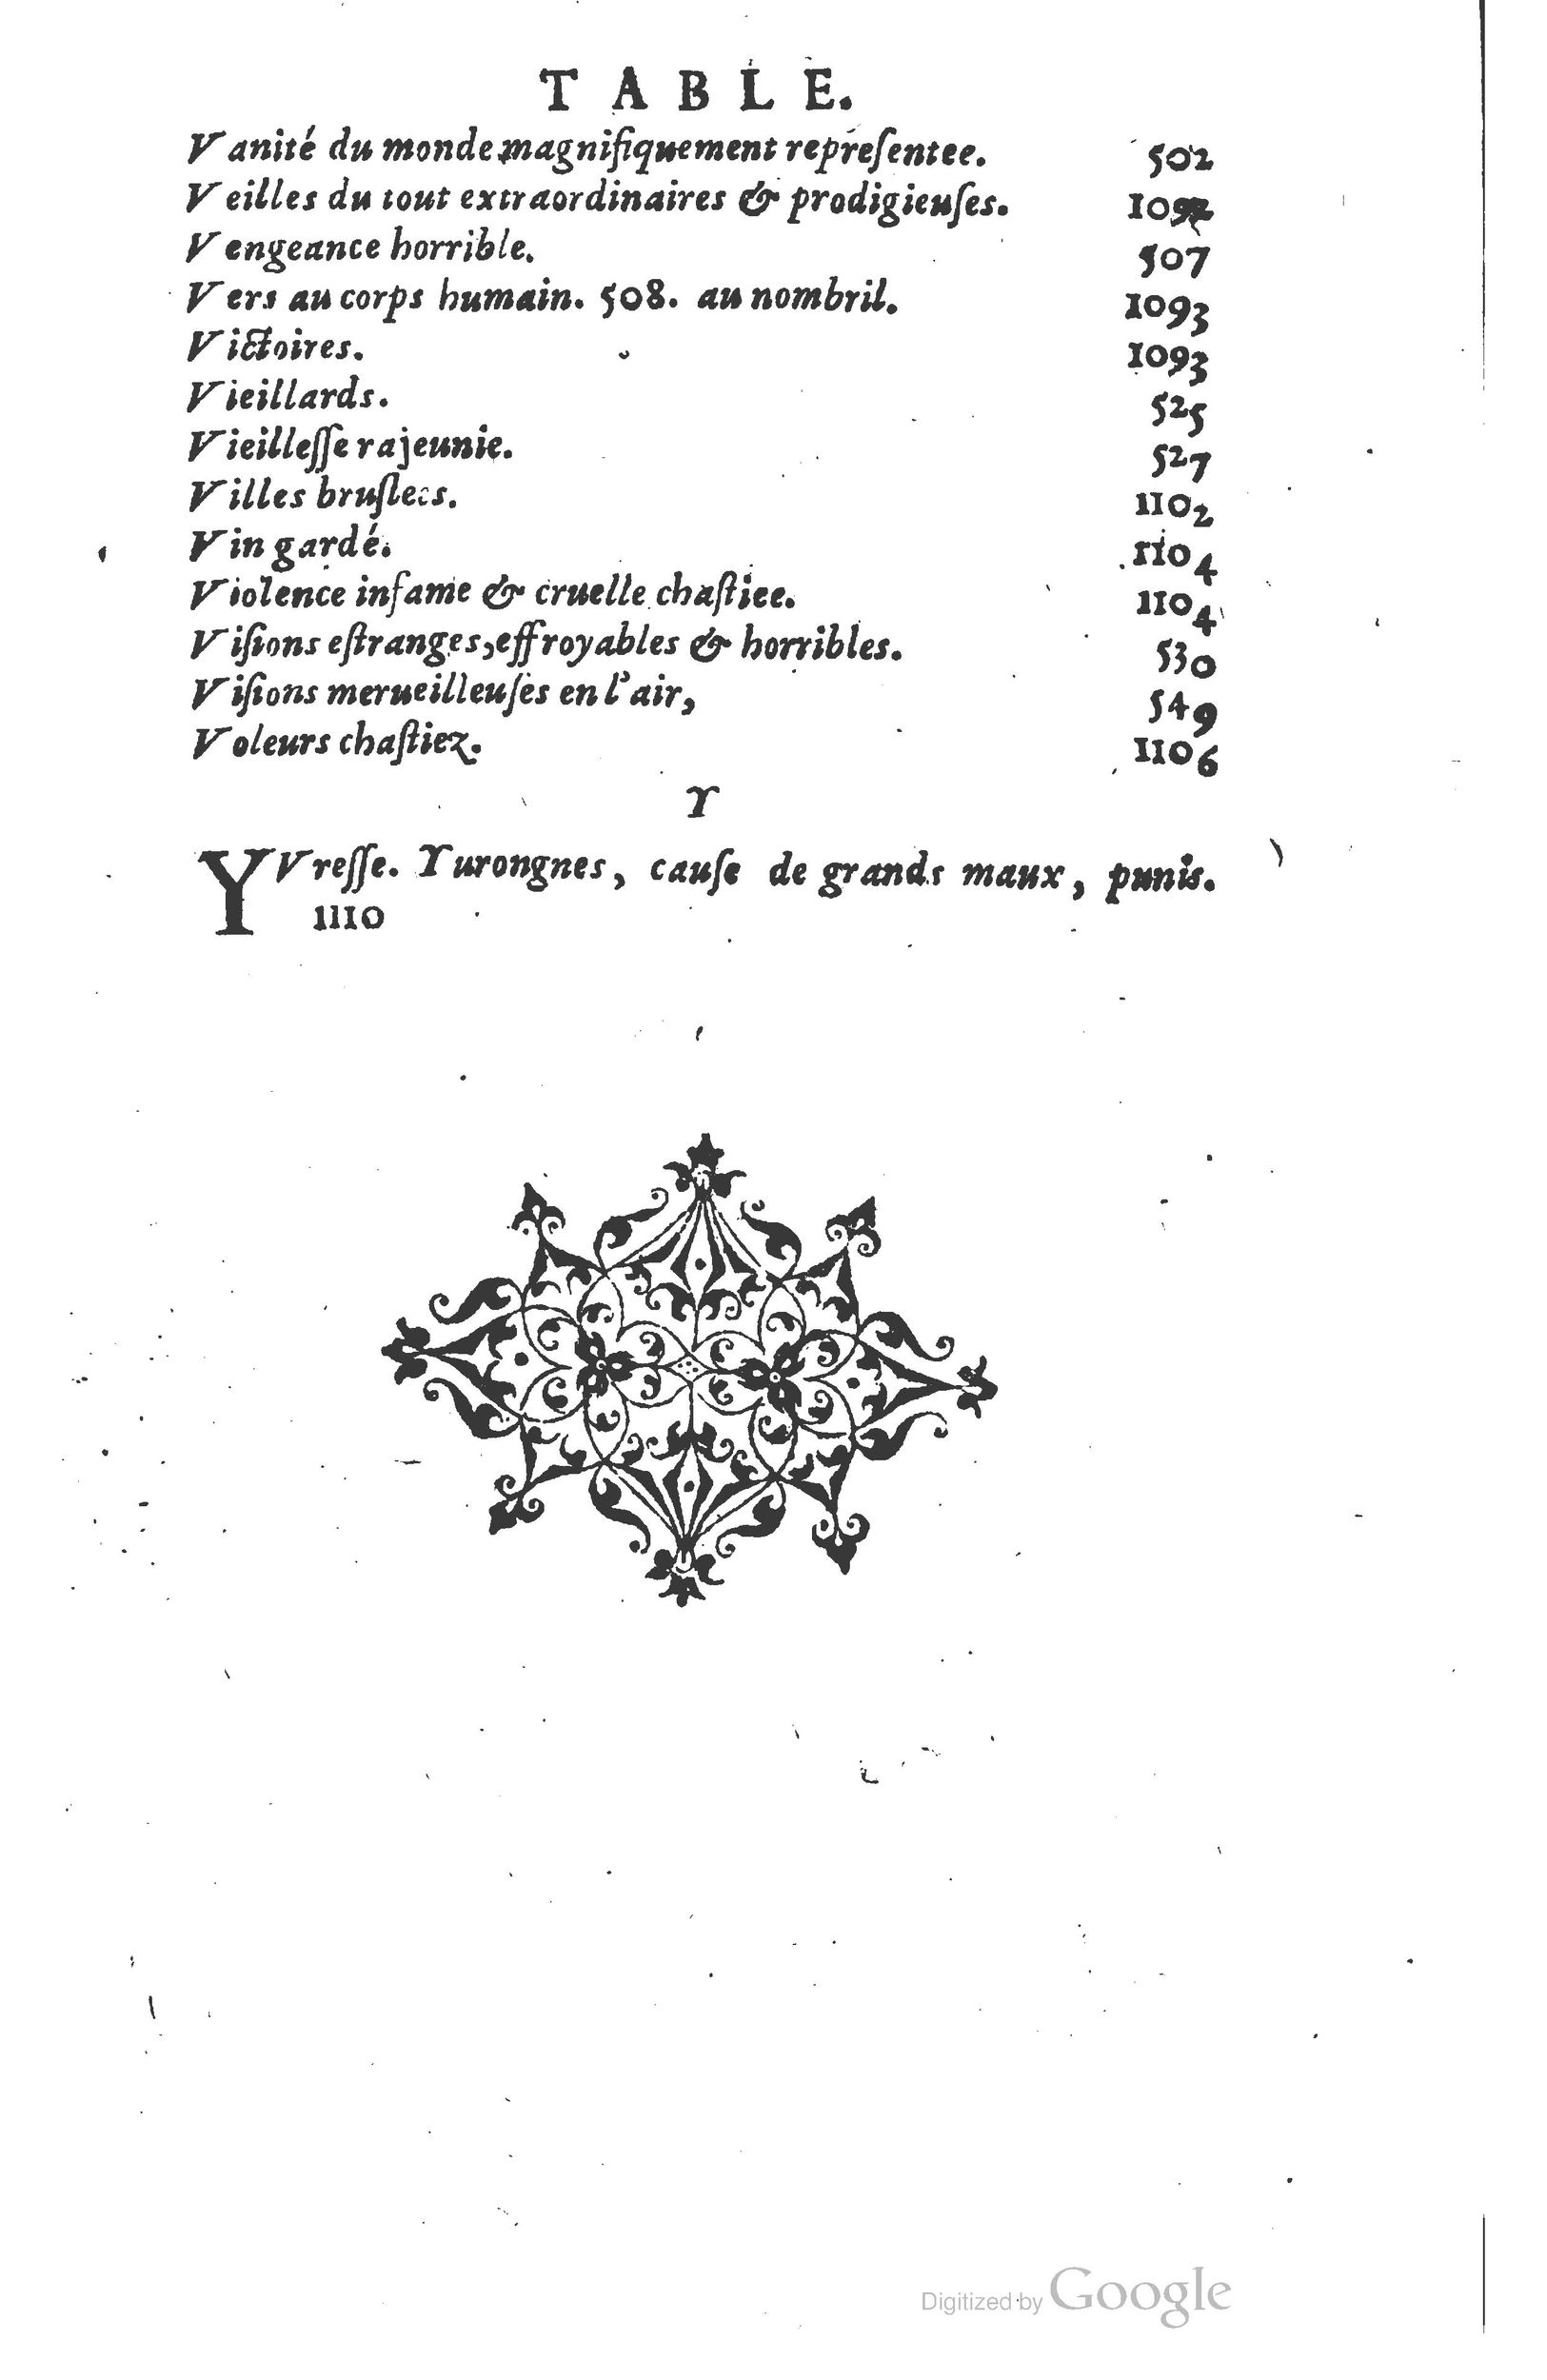 TABLE.
Vanité du monde magnifiquement repreſentee. 502
Veilles du tout extraordinaires & prodigieuſes.
Vengeance horrible. 507
Vers au corps humain. 508. au nombril. 1093
Victoires. 1093
Vieillards. 525
Vieilleſſe rajeunie. 527
Villes bruſlees. 1102
Vin gardé. 1104
Violence infame & cruelle chaſtiee. 1104
Viſions eſtranges, effroyables & horribles. 530
Viſions merueilleuſes en l'air, 549
Voleurs chaſtiez. 1106
Y
YVreſſe. Yurongnes, cauſe de grands maux, punis.
1110
Digitized by Google